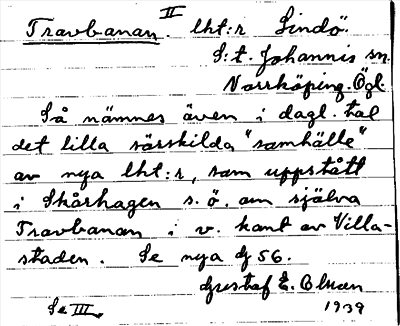 Travbanan. II lht:r Lindö.
S:t. Johannis sn.
Norrköping. Ögl.
Så nämnes även i dagl. tal
det lilla särskilda "samhälle"
av nya lht:r, som uppstått
i Skårhagen s.ö. om själva
Travbanan i v. kant av Villa-
staden. Se nya dj 56.
Gustaf E. Olsson
Se III. 1939